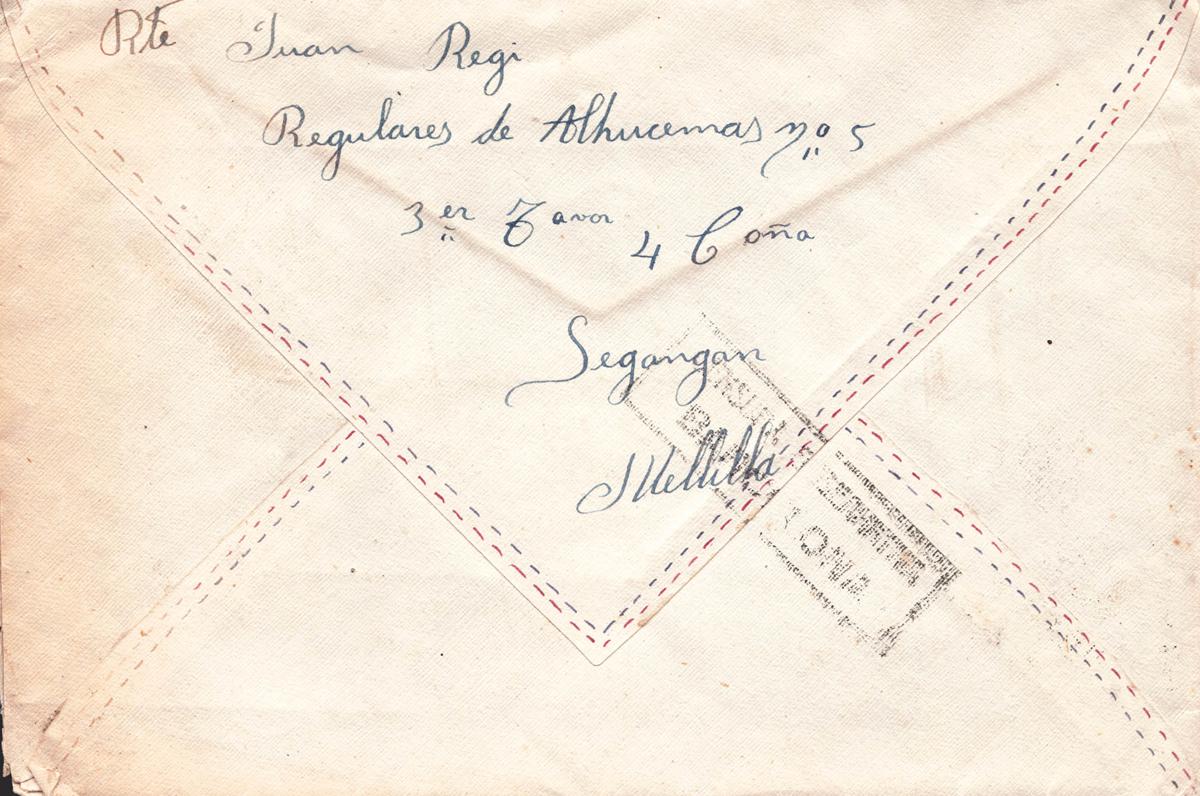 Rte Juan Regi
Regulares de Alhucemas nº 5
3er Tavor 4 Coñia
Segangan
Mellilla